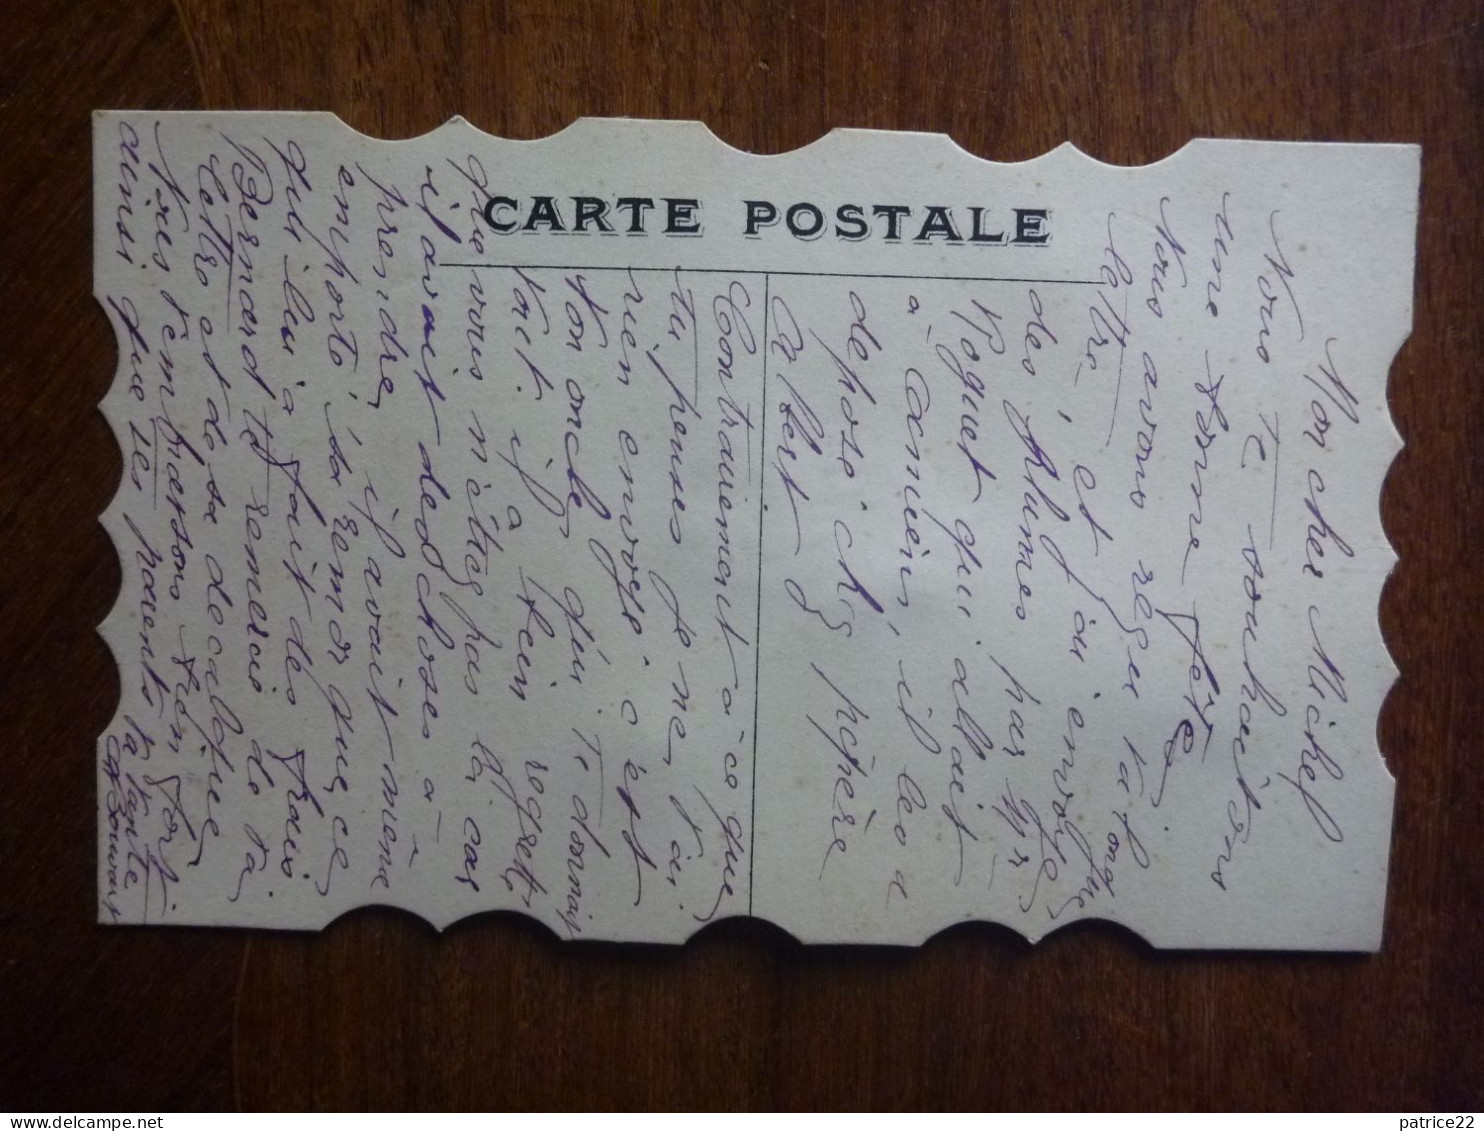 CARTE POSTALE
Mon cher Michel
Nous te souhaitons
une bonne fête
Nous avons reçu ta longue
lettre, et j'ai envoyé
des plumes par Mr
Poguet qui allait
à Amiens, il les a
déposé chez pépère
Albert
Contrairement à ce que
tu penses je ne t'ai
rien envoyé c'est
ton oncle qui te donnait
tort. il a bien regretté
que vous n'êtes pas là car
il avait des choses à
prendre, il avait même
emporté sa remorque ce
qui lui a fait des frais
Bernard te remercie de ta
lettre et de sa décalque
Nous t'embrassons bien fort
ainsi que tes parents ta tante